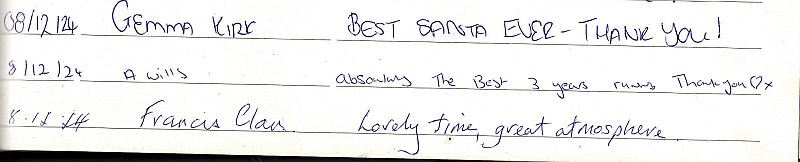 08/12/24 GEMMA KIRK BEST SANTA EVER - THANK YOU!
8/12/24 A Wills absouluny The Best 3 years runns Thank you ♡x
8.12.24 Francis Clan Lovely time, great atmosphere